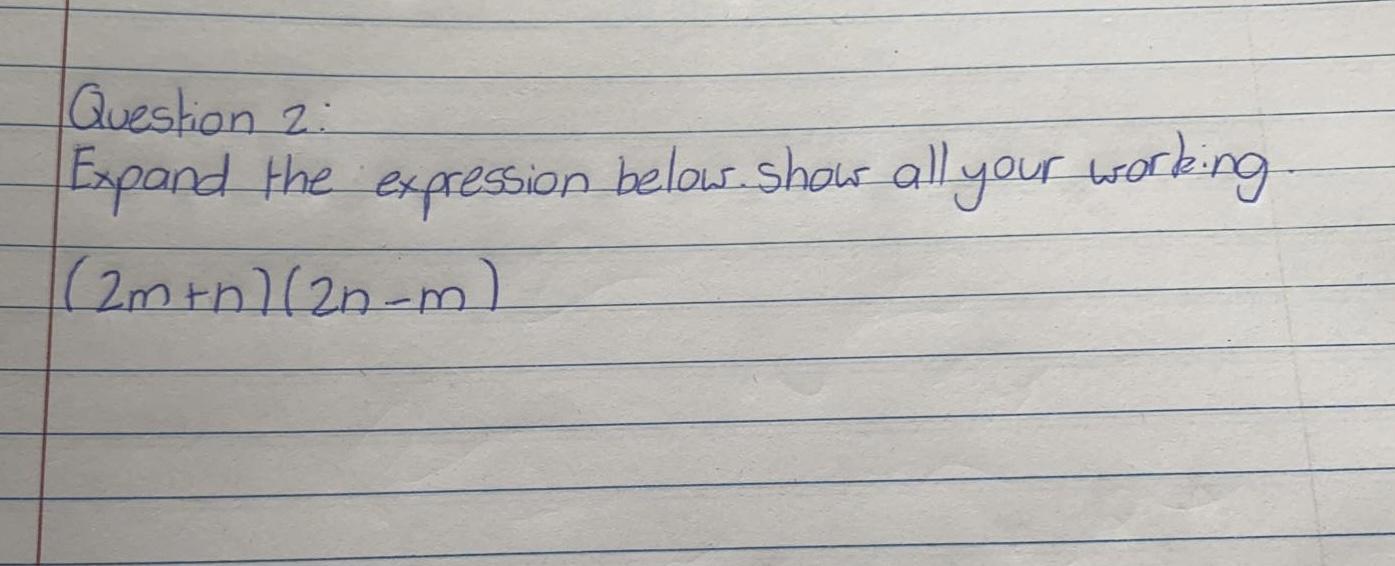 Question 2:
Expand the expression below. show all your working.
(2m+n)(2n-m)